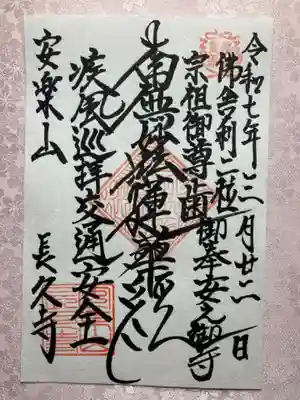 令和七年三月廿二日
佛舎利二粒御奉安之御寺
宗祖御尊歯
南無妙法蓮華経
疾風巡拝交通安全
安楽山
長久寺